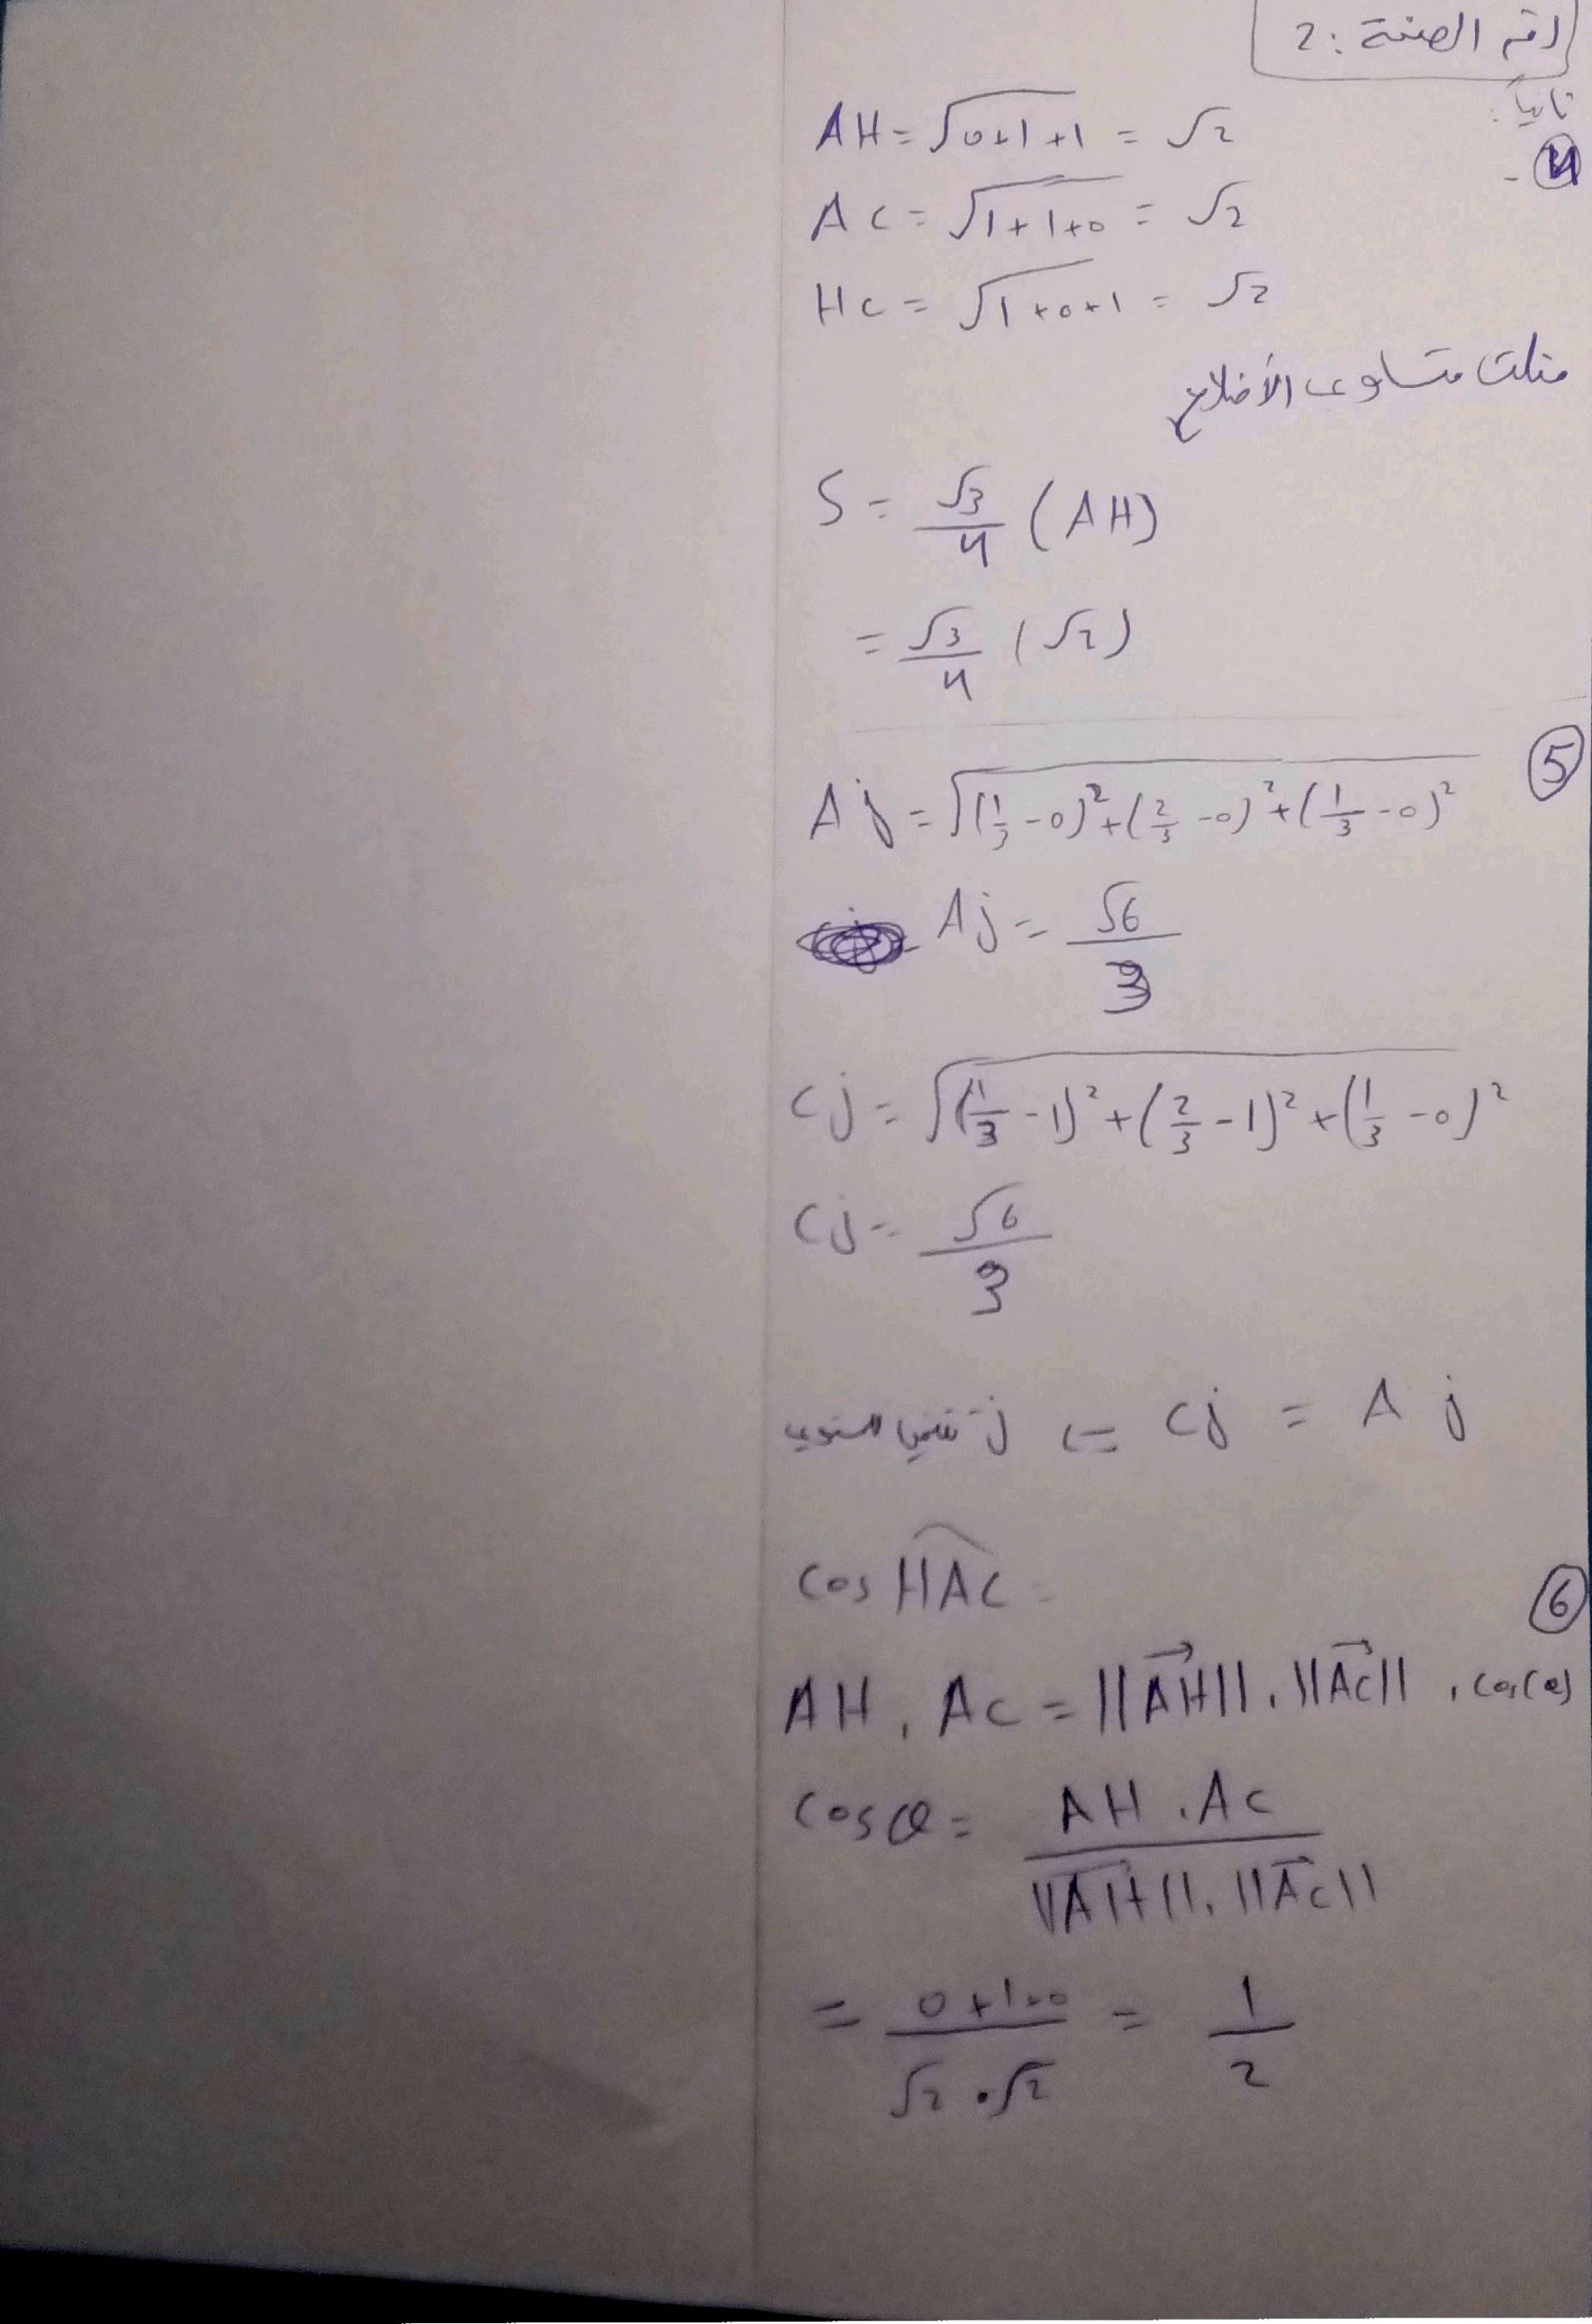 رقم الصفحة : 2
ثانياً :
4 -
AH = √(0+1+1) = √2
AC = √(1+1+0) = √2
HC = √(1+0+1) = √2
مثلث متساوي الأضلاع
S = √3/4 (AH)
= √3/4 (√2)
5
Aj = √((1/3 - 0)² + (2/3 - 0)² + (1/3 - 0)²)
Aj = √6/3
Cj = √((1/3 - 1)² + (2/3 - 1)² + (1/3 - 0)²)
Cj = √6/3
Aj = Cj ⇐ j تنتمي للمستوي
6
cos HAC =
AH . AC = ||AH|| . ||AC|| . cos(θ)
cos θ = AH . AC / ||AH|| . ||AC||
= 0+1+0 / √2 . √2 = 1/2